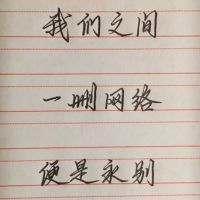 我们之间
一删网络
便是永别